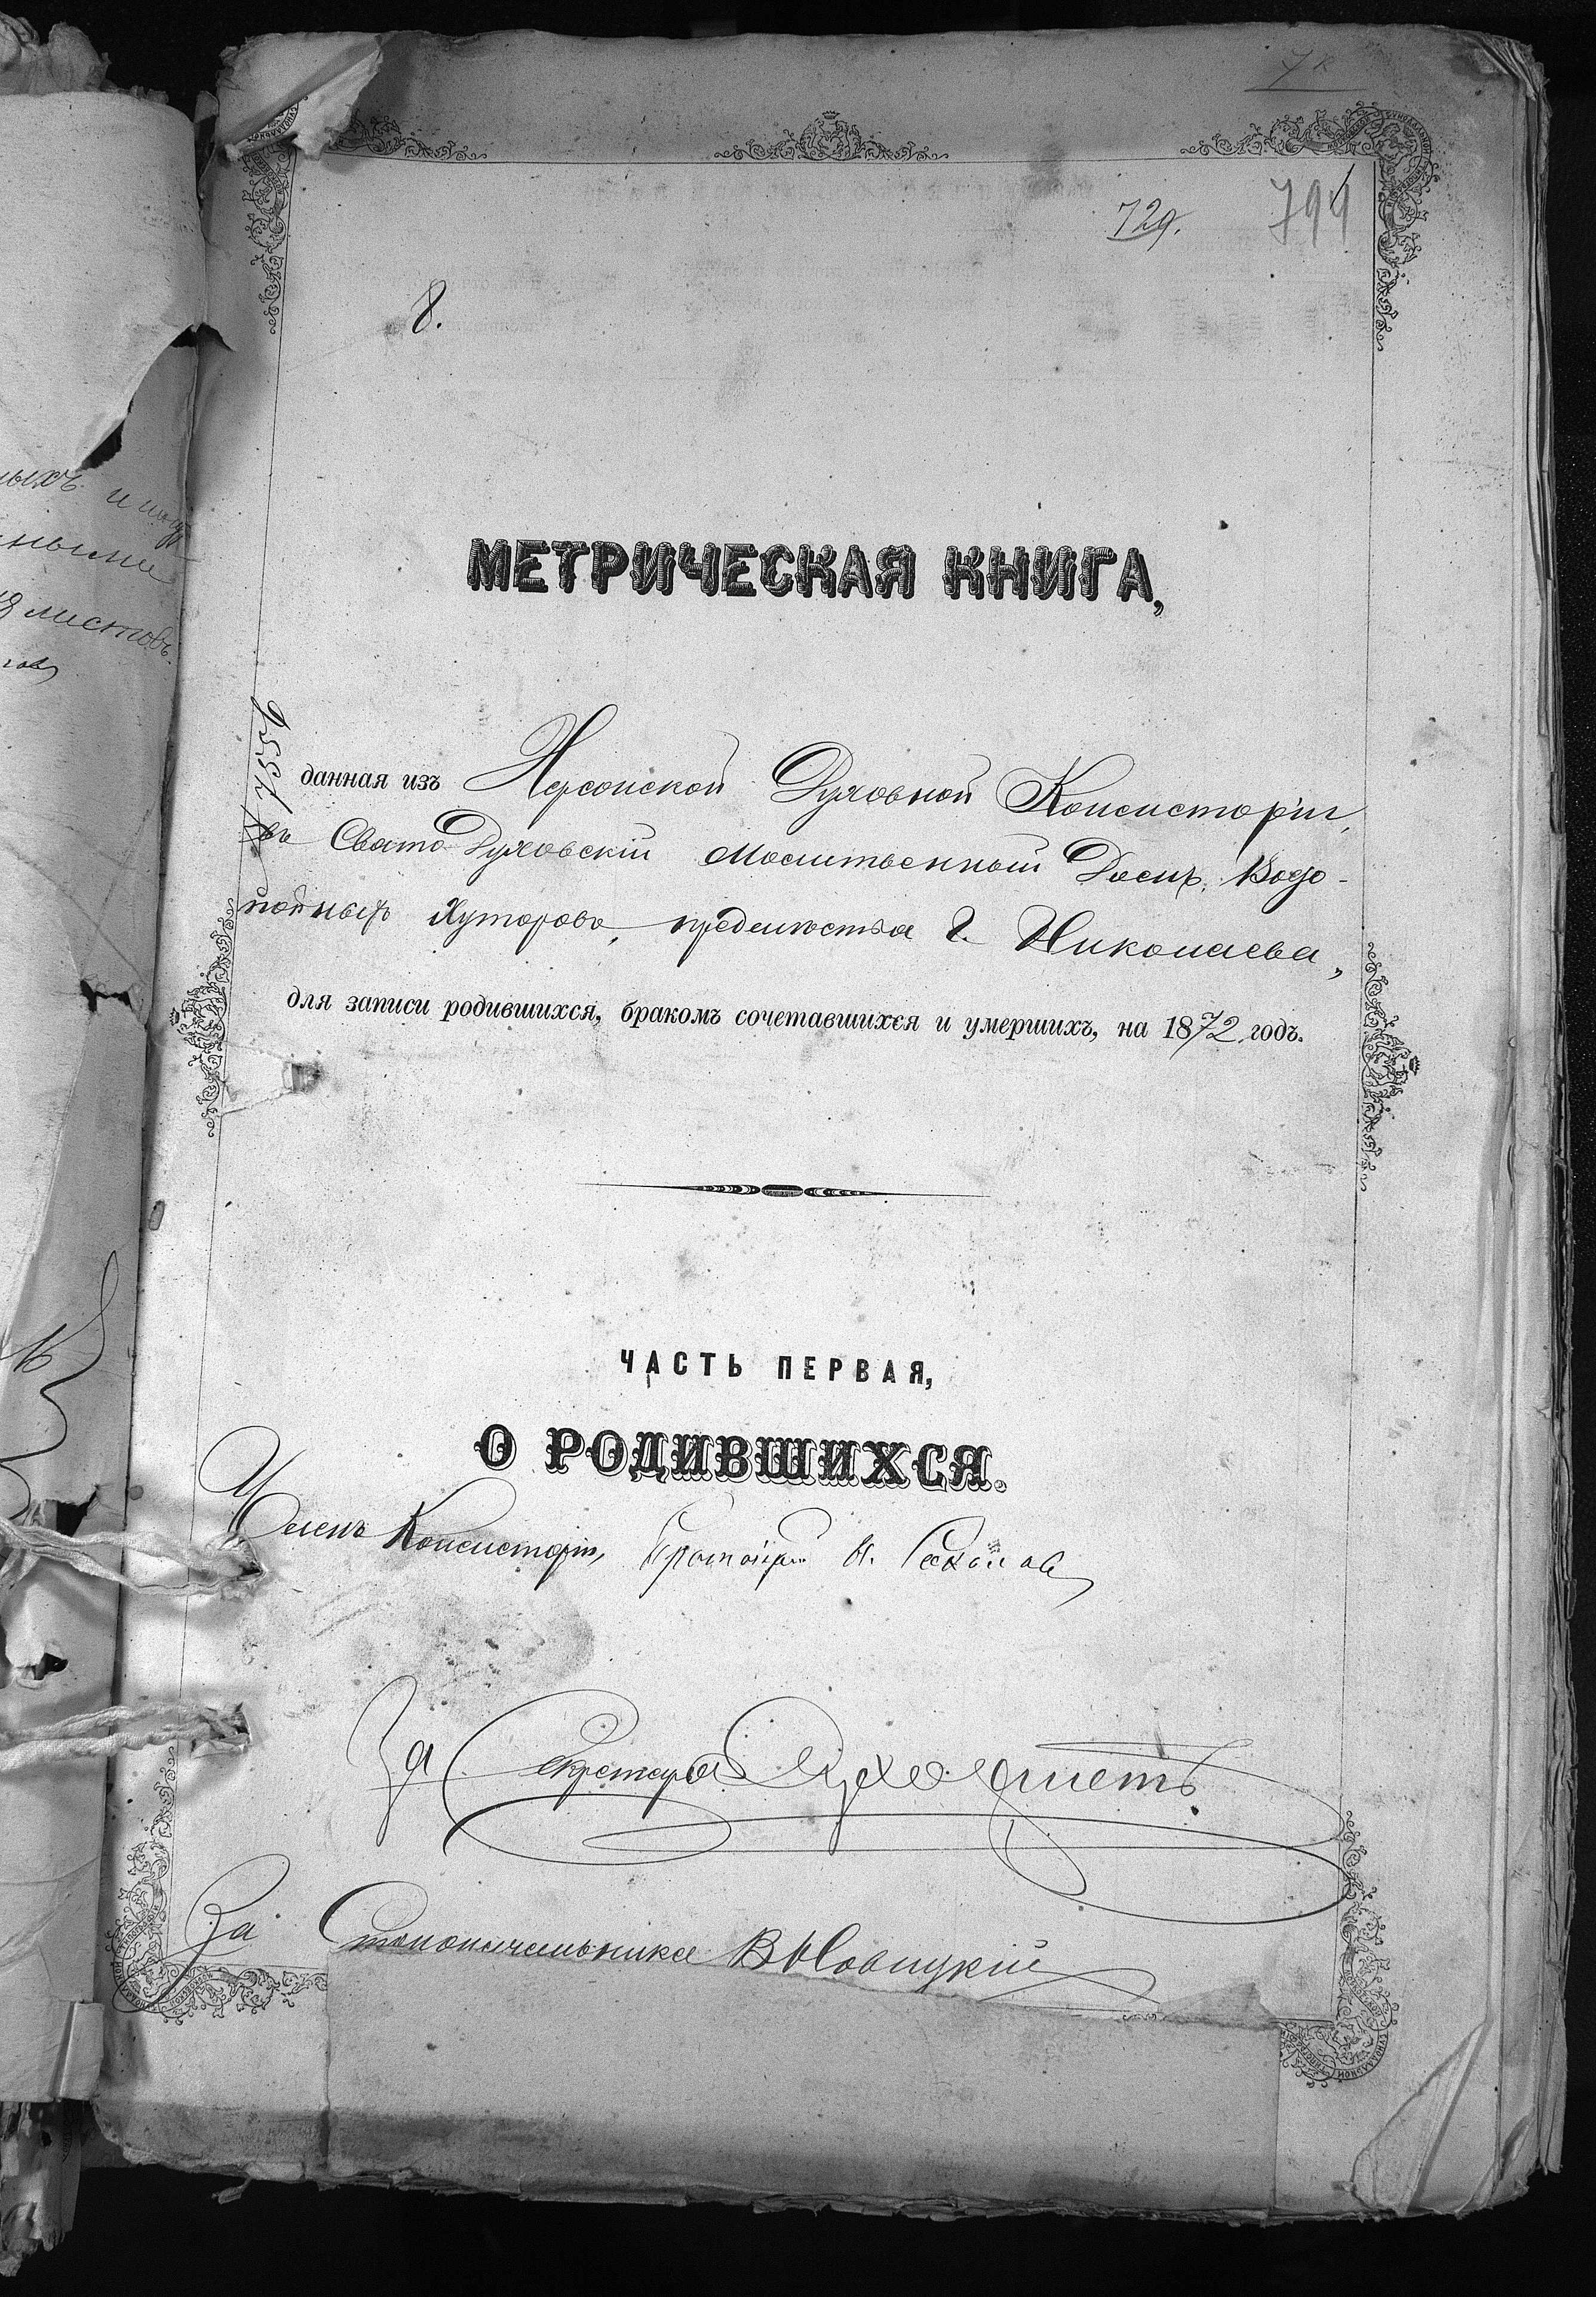 7
729.
794
8.
МЕТРИЧЕСКАЯ КНИГА,
данная изъ Херсонской Духовной Консисторіи,
въ Свято-Духовскій Молитвенный Домъ, Водо-
пойныхъ Хуторовъ, предмѣстья г. Николаева,
для записи родившихся, бракомъ сочетавшихся и умершихъ, на 1872 годъ.
ЧАСТЬ ПЕРВАЯ,
О РОДИВШИХСЯ.
Членъ Консисторіи, Протоіерей
За Секретаря
За Столоначальника В Новицкій
листовъ.